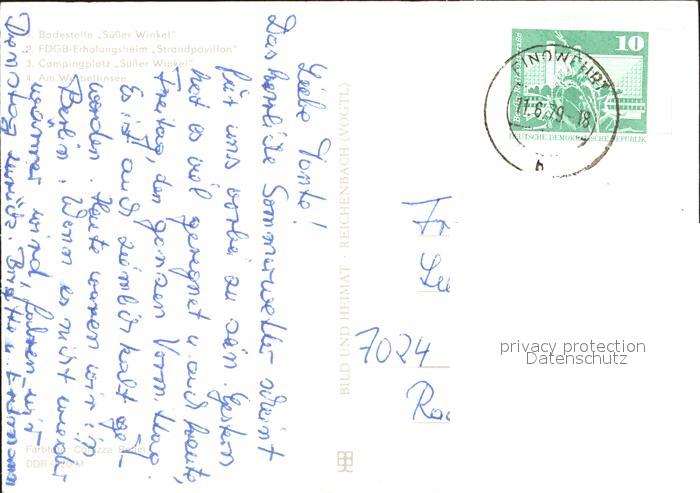 1. Badestelle „Süßer Winkel"
2. FDGB-Erholungsheim „Strandpavillon"
3. Campingplatz „Süßer Winkel"
4. Am Werbellinsee
Liebe Tante!
Das herrliche Sommerwetter scheint
für uns vorbei zu sein. Gestern
hat es viel geregnet u. auch heute,
Freitag, den ganzen Vormittag.
Es ist auch ziemlich kalt ge-
worden. Heute waren wir in
Berlin. Wenn es nicht wieder
wärmer wird, fahren wir
Dienstag zurück. Brigitte u.
BILD UND HEIMAT · REICHENBACH (VOGTL)
Farbfoto: Corazza, Berlin
DDR 0,20 M
10
DEUTSCHE DEMOKRATISCHE REPUBLIK
11.6.79-18
b
Fr
7024
privacy protection
Datenschutz